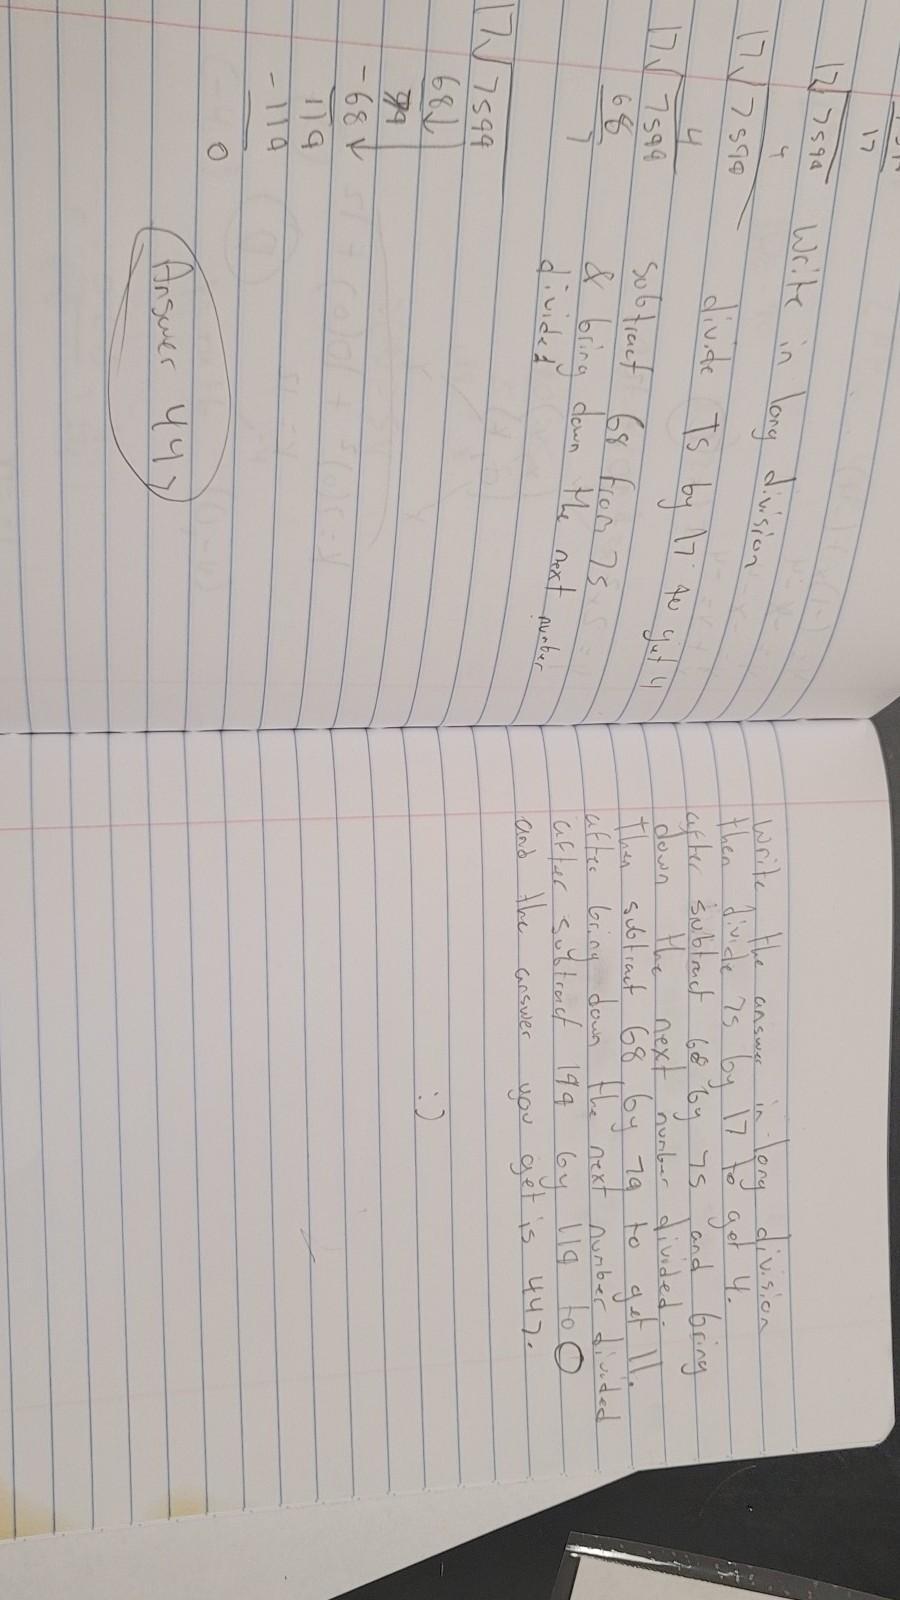 17
17√7599 Write in long division
4
17√7599 divide 75 by 17 to get 4
4
17√7599 subtract 68 from 75
68 & bring down the next number
7 divided
17√7599
68↓
79
-68↓
119
-119
0
Answer 447
Write the answer in long division
then divide 75 by 17 to get 4.
after subtract 68 by 75 and bring
down the next number divided.
then subtract 68 by 79 to get 11.
after bring down the next number divided
after subtract 199 by 119 to 0
and the answer you get is 447.
:)